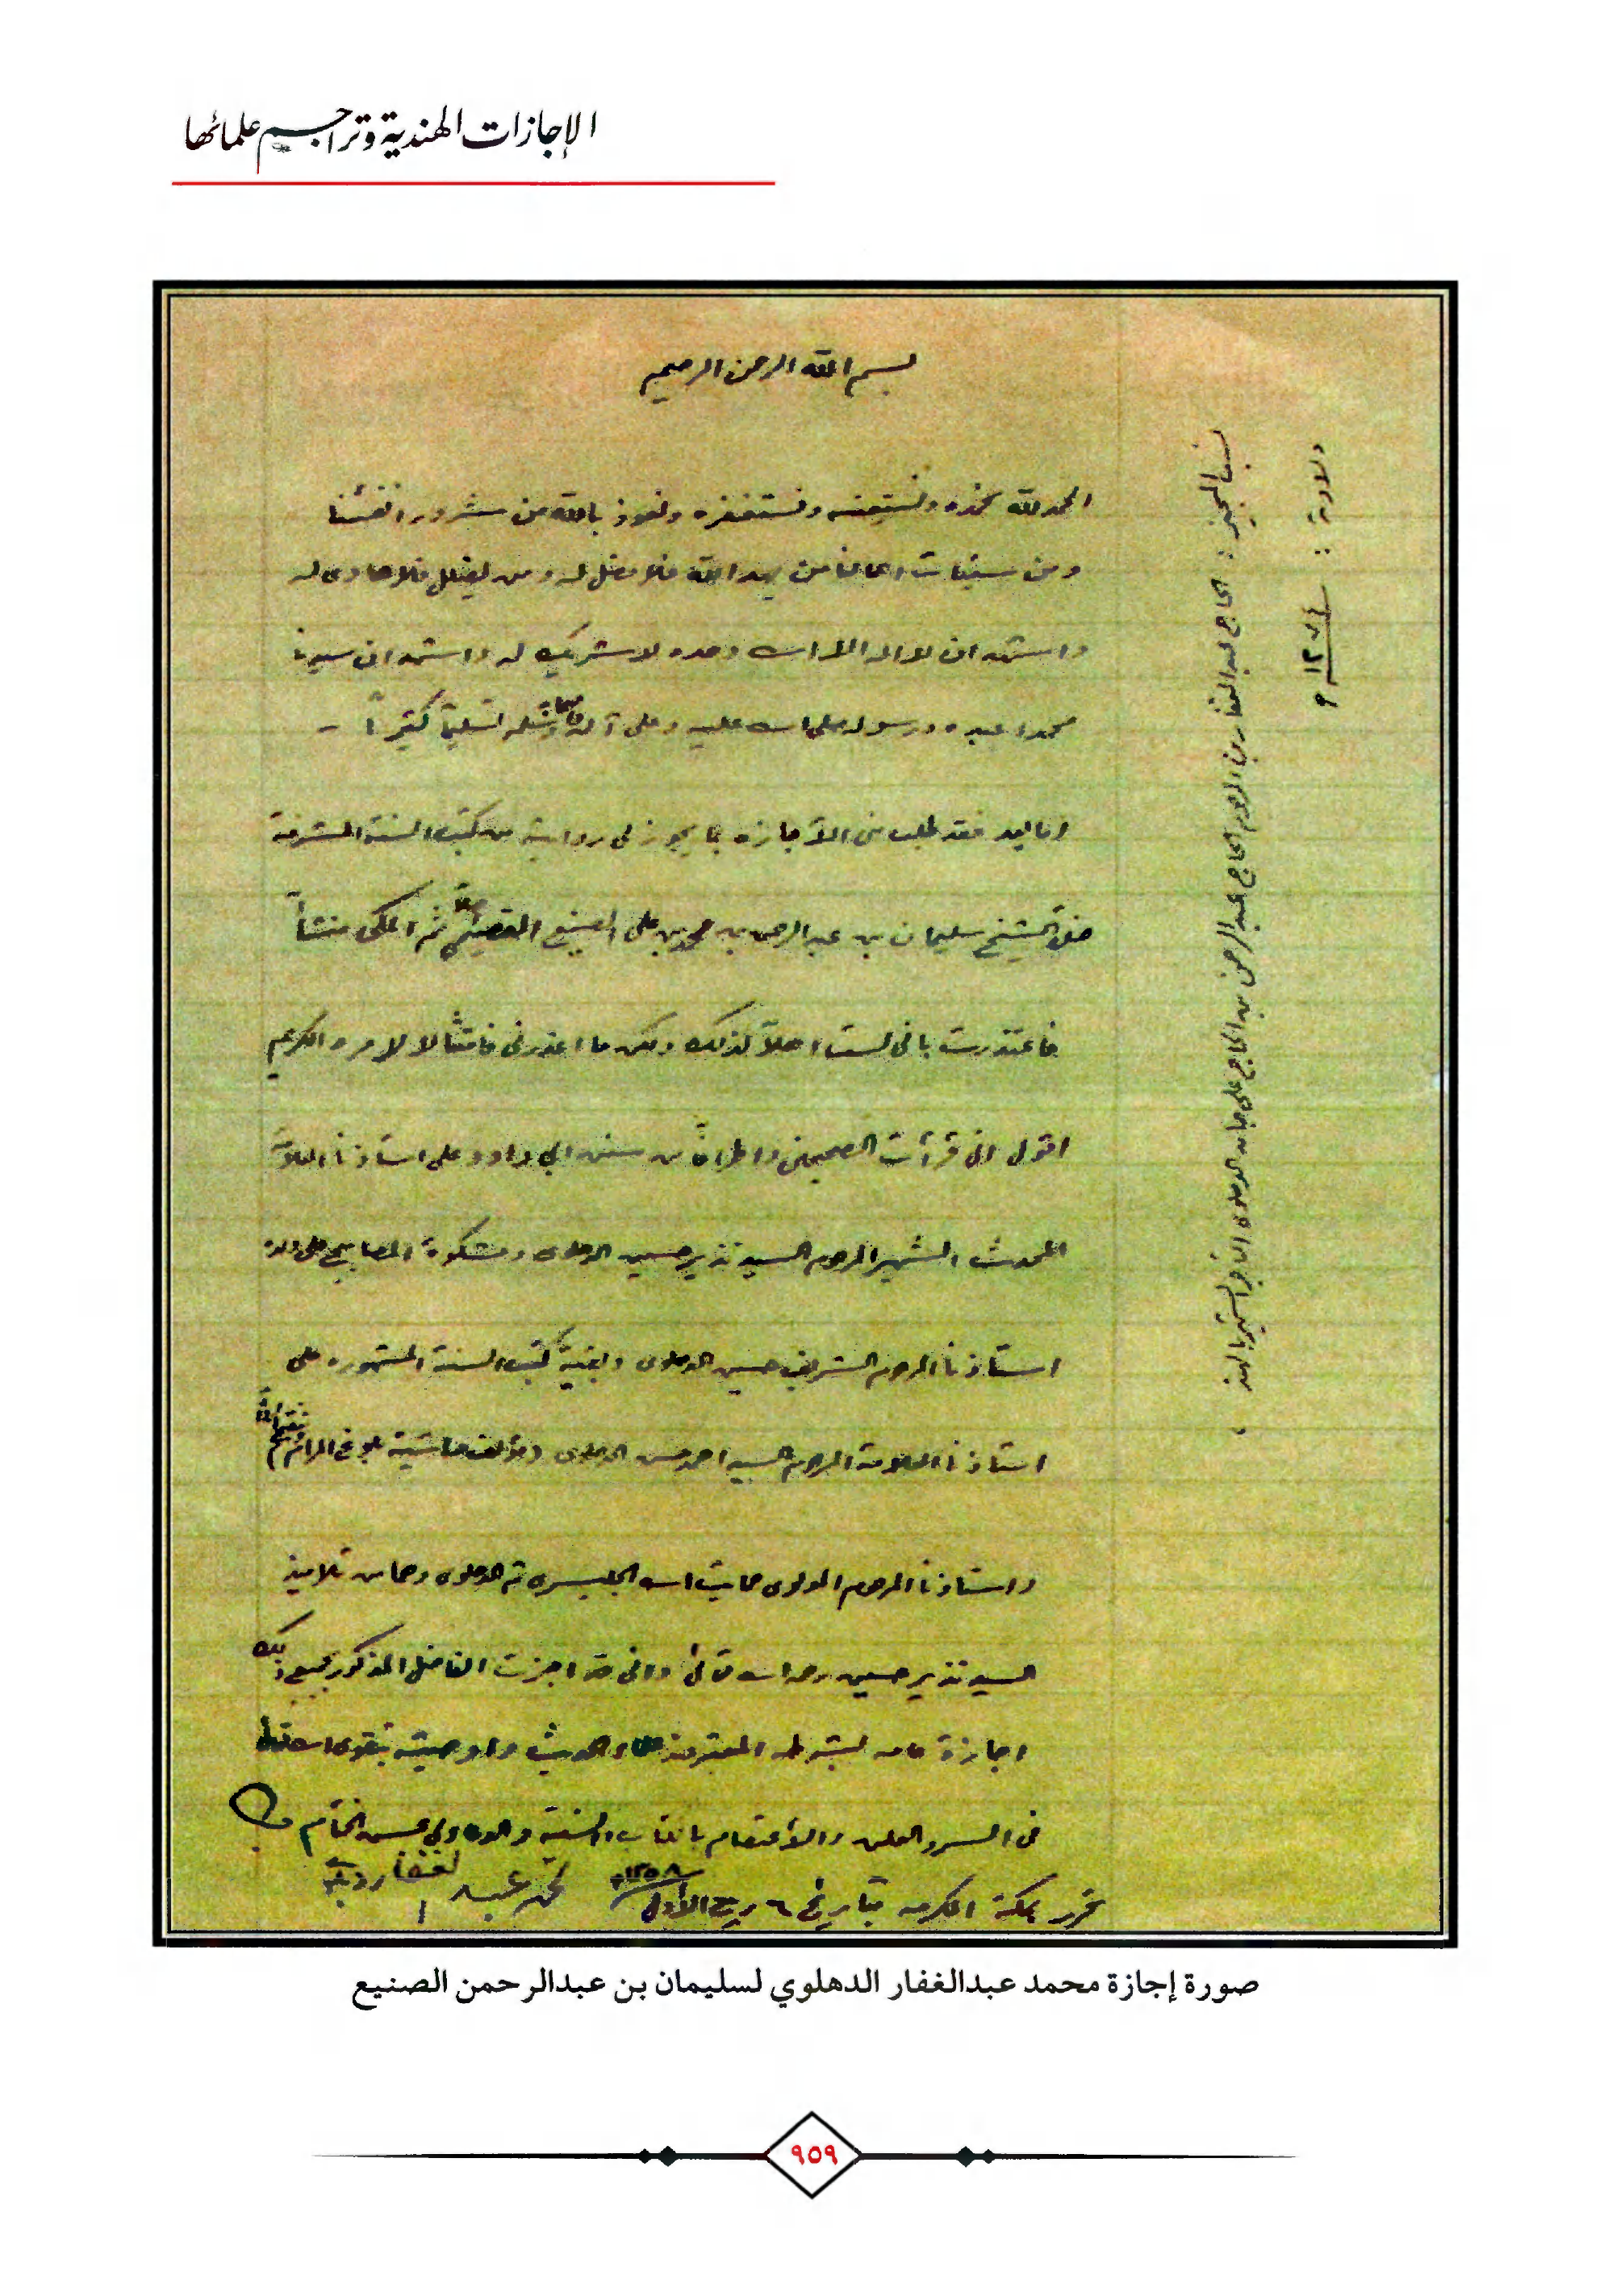 الإجازات الهندية وتراجم علمائها
بسم الله الرحمن الرحيم
الحمد لله نحمده ونستعينه ونستغفره ونعوذ بالله من شرور انفسنا
ومن سيئات اعمالنا من يهد الله فلا مضل له ومن يضلل فلا هادى له
واشهد ان لا اله الا الله وحده لا شريك له واشهد ان سيدنا
محمدا عبده ورسوله صلى الله عليه وعلى آله وسلم تسليما كثيرا -
اما بعد فقد طلب منى الأجازه بما يجوز لى روايته من كتب السنة المشرفة
الشيخ سليمان بن عبد الرحمن بن محمد بن على الصنيع القصيمى اصلاً ثم المكى منشأً
فاعتذرت بانى لست اهلاً لذلك ولكن ما اعذرنى فامتثالا لامره الكريم
اقول انى قرأت الصحيحين واطرافاً من سنن ابي داود على استاذنا العلامة
المحدث الشهير المرحوم السيد نذير حسين الدهلوى ومشكوة المصابيح على ولده
استاذنا المرحوم الشريف حسين الدهلوى وبقية كتب السنة المشهوره على
استاذنا العلامة المرحوم السيد احمد حسن الدهلوى (مؤلف حاشية بلوغ المرام)
واستاذنا المرحوم المولوى عنايت الله الجليسرى ثم الدهلوى وهما من تلاميذ
السيد نذير حسين رحمه الله تعالى وانى قد اجزت الفاضل المذكور بجميع ذلك
اجازة عامه بشرطه المعتبر عند علماء الحديث واوصيته بتقوى الله تعالى
فى السر والعلن والأعتصام بالكتاب والسنة والدعاء لي بحسن الختام
تحرر بمكة المكرمه بتاريخ ٦ ربيع الأول ١٣٥٨ محمد عبد الغفار
نسب المجيز : الحاج عبد الغفار بن المرحوم الحاج عبد الرحمن بن الحاج على جان الدهلوى التاجر الشهير بالهند
ولادته :
صورة إجازة محمد عبدالغفار الدهلوي لسليمان بن عبدالرحمن الصنيع
٩٥٩